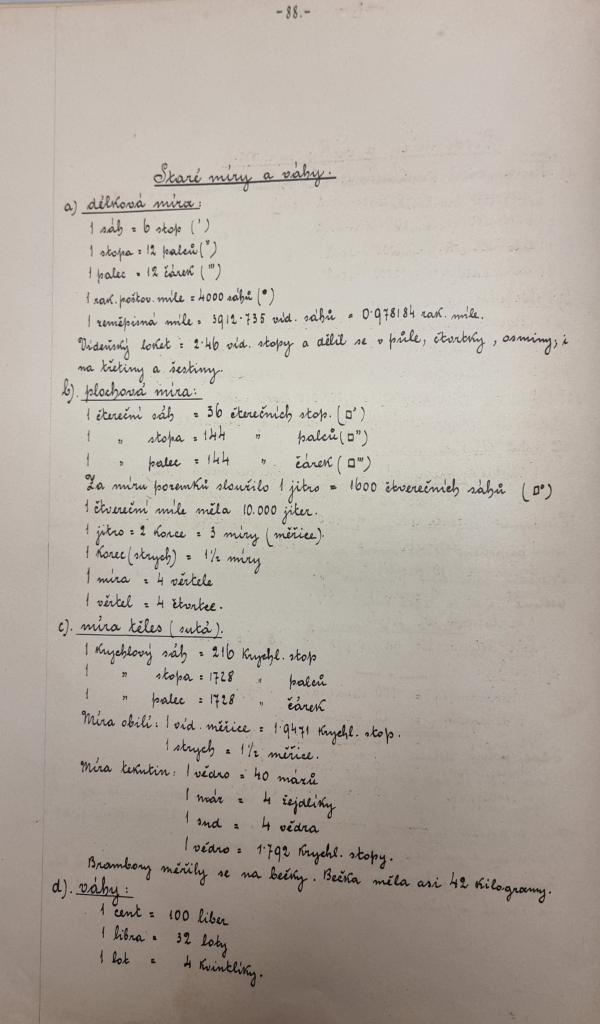 -88.-
Staré míry a váhy.
a) délková míra:
1 sáh = 6 stop (')
1 stopa = 12 palců (")
1 palec = 12 čárek ("')
1 rak. poštov. míle = 4000 sáhů (°)
1 zeměpisná míle = 3912·735 víd. sáhů = 0·978184 rak. míle.
Vídeňský loket = 2·46 víd. stopy a dělil se v půle, čtvrtky, osminy, i
na třetiny a šestiny.
b). plochová míra:
1 čtereční sáh = 36 čterečních stop. (□')
1 „ stopa = 144 „ palců (□")
1 „ palec = 144 „ čárek (□"')
Za míru pozemků sloužilo 1 jitro = 1600 čtverečních sáhů (□°)
1 čtvereční míle měla 10.000 jiter.
1 jitro = 2 korce = 3 míry (měřice).
1 korec (strych) = 1½ míry
1 míra = 4 věrtele
1 věrtel = 4 čtvrtce.
c). míra těles (sutá).
1 krychlový sáh = 216 krychl. stop
1 „ stopa = 1728 „ palců
1 „ palec = 1728 „ čárek
Míra obilí: 1 víd. měřice = 1·9471 krychl. stop.
1 strych = 1½ měřice.
Míra tekutin: 1 vědro = 40 mázů
1 máz = 4 žejdlíky
1 sud = 4 vědra
1 vědro = 1·792 krychl. stopy.
Brambory měřily se na bečky. Bečka měla asi 42 kilogramy.
d). váhy:
1 cent = 100 liber
1 libra = 32 loty
1 lot = 4 kvintlíky.